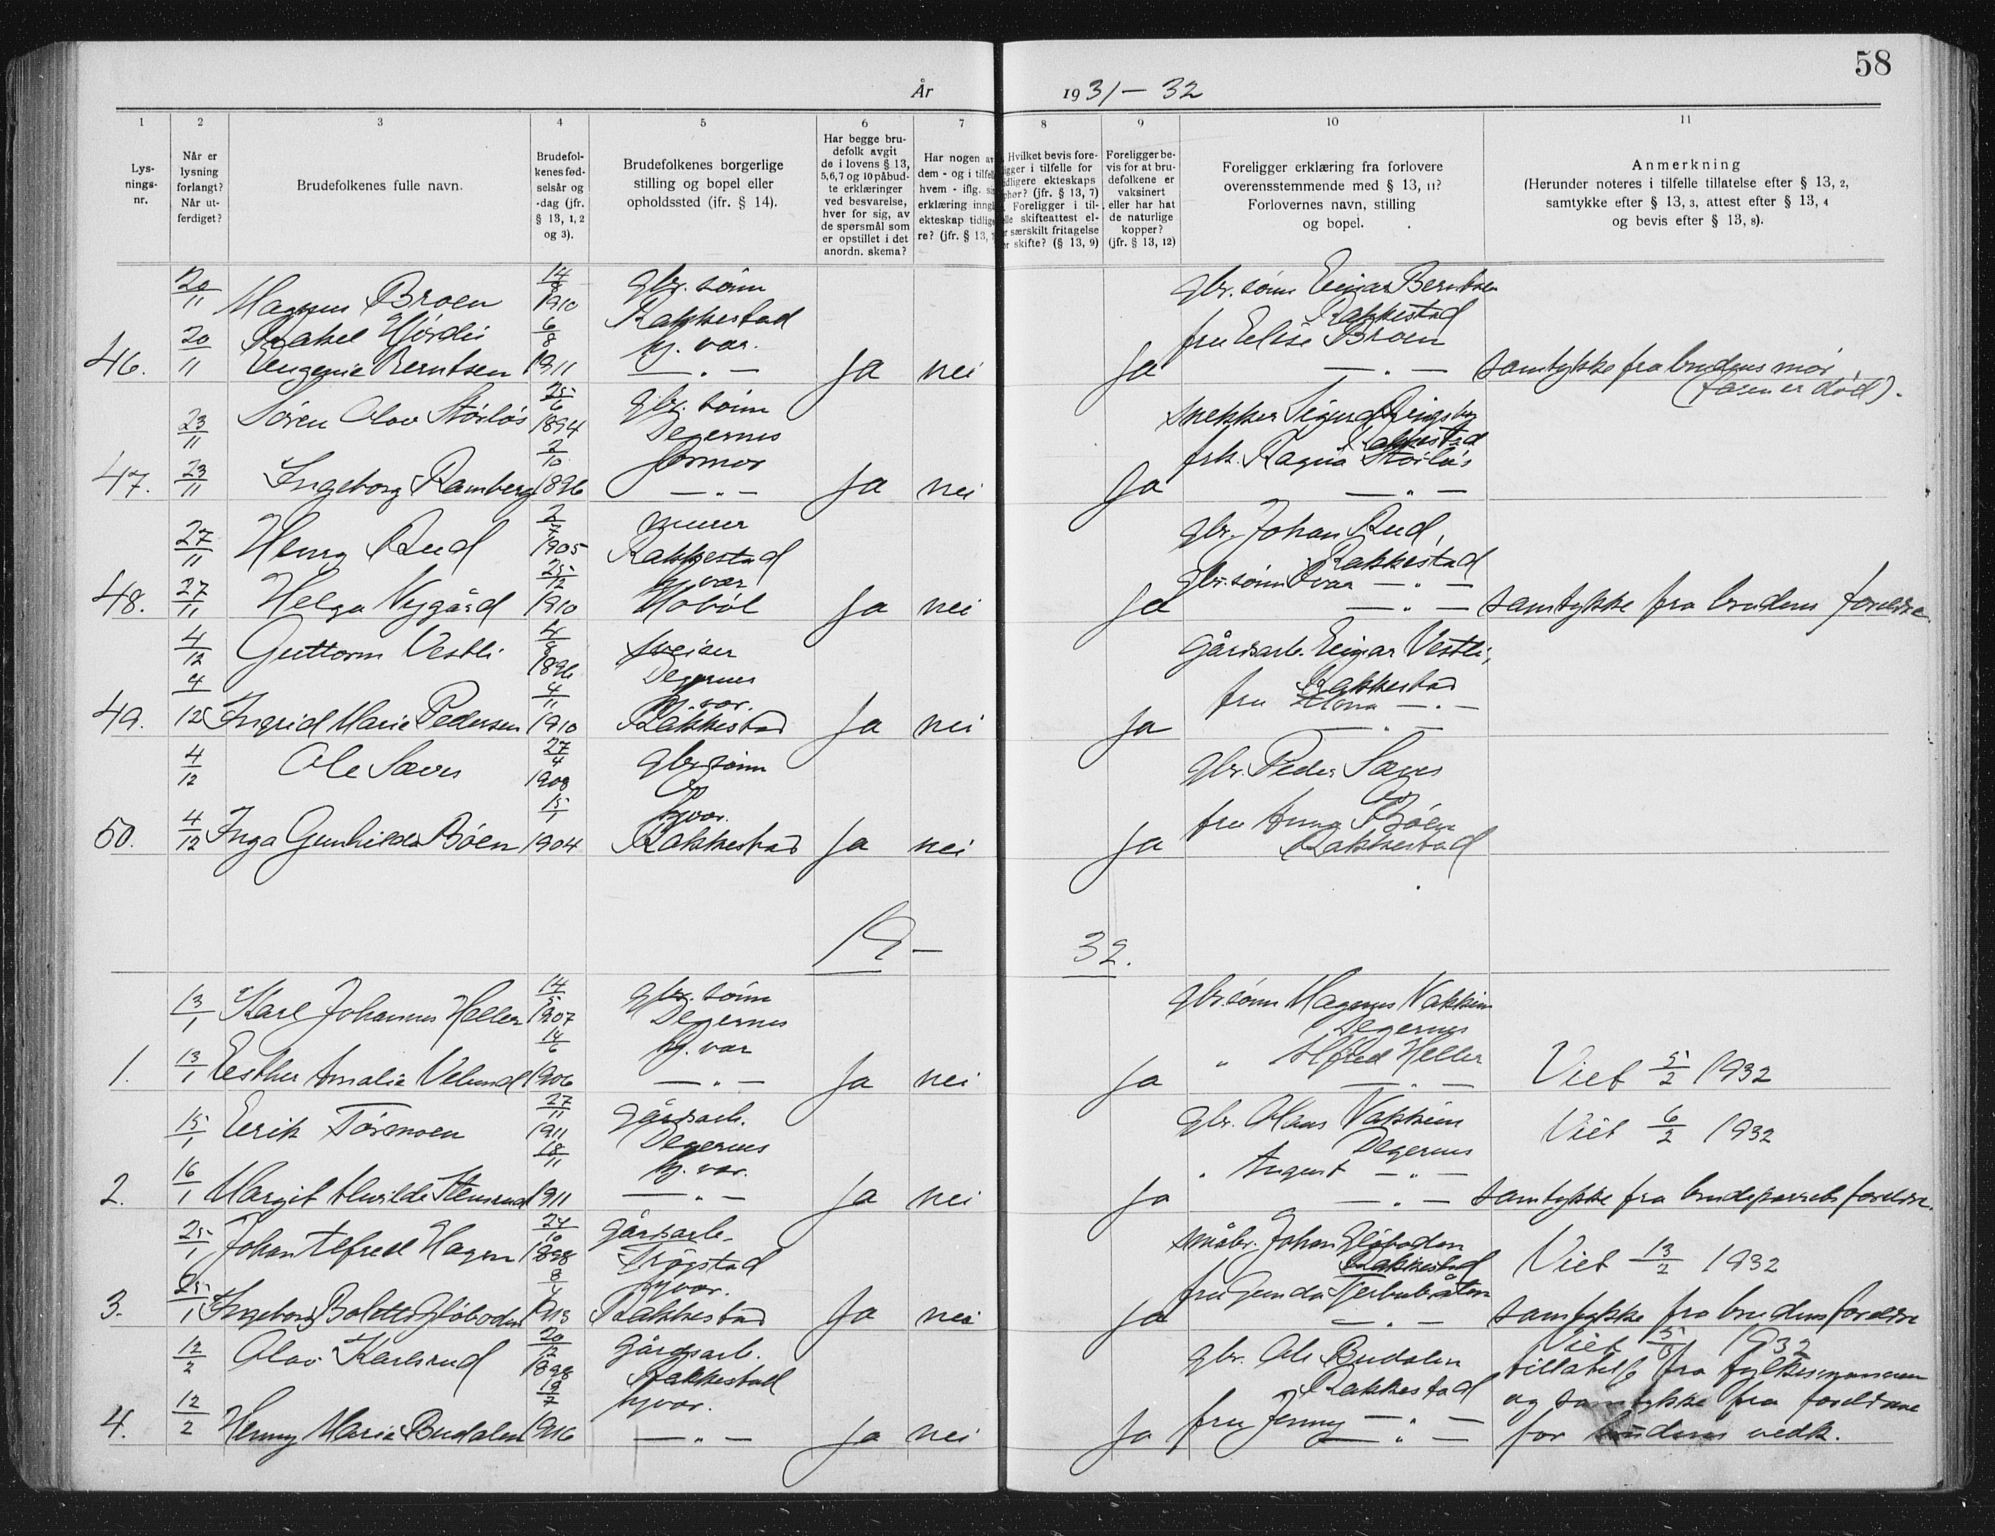 58
År 1931 – 32
1 2 3 4 5 6 7 8 9 10 11
Lysningsnr.
Når er lysning forlangt? Når utferdiget?
Brudefolkenes fulle navn.
Brudefolkenes fødselsår og -dag (jfr. § 13, 1, 2 og 3).
Brudefolkenes borgerlige stilling og bopel eller opholdssted (jfr. § 14).
Har begge brudefolk avgit de i lovens § 13, 5, 6, 7 og 10 påbudte erklæringer ved besvarelse, hver for sig, av de spørsmål som er opstillet i det anordn. skema?
Har nogen av dem - og i tilfelle hvem - iflg. erklæring inngått ekteskap tidligere? (jfr. § 13,
Hvilket bevis foreligger i tilfelle for tidligere ekteskaps ophør? (jfr. § 13, 7) Foreligger i tilfelle skifteattest eller særskilt fritagelse for skifte? (§ 13, 9)
Foreligger bevis for at brudefolkene er vaksinert eller har hat de naturlige kopper? (jfr. § 13, 12)
Foreligger erklæring fra forlovere overensstemmende med § 13, 11? Forlovernes navn, stilling og bopel.
Anmerkning
(Herunder noteres i tilfelle tillatelse efter § 13, 2, samtykke efter § 13, 3, attest efter § 13, 4 og bevis efter § 13, 8).
20/11 Magnus Broen 14/8 1910 gbr. sønn Rakkestad gbr. sønn Einar Berntsen Rakkestad
46. 20/11 Rakel Hjørdis Eugenie Berntsen 6/8 1911 hj. vær. — „ — Ja nei Ja fru Elise Broen — „ — samtykke fra brudens mor (faren er død).
23/11 Søren Olav Storløs 25/6 1894 gbr. sønn Degernes snekker Sigurd Ringsby Rakkestad
47. 23/11 Ingeborg Ramberg 2/10 1896 jormor — „ — Ja nei Ja frk. Ragna Storløs — „ —
27/11 Henry Rud 2/7 1905 murer Rakkestad gbr. Johan Rud, Rakkestad
48. 27/11 Helga Nygård 25/12 1910 hj. vær Hobøl Ja nei Ja gbr. sønn Ivar — „ — — „ — samtykke fra brudens foreldre.
4/12 Guttorm Vestli 1896 sveiser Degernes gårdsarb. Einar Vestli, Rakkestad
49. 4/12 Ingrid Marie Pedersen 4/11 1910 hj. vær. Rakkestad Ja nei Ja fru — „ — — „ —
4/12 Ole Sæves 27/4 1908 gbr. sønn gbr. Peder Sæves
50. 4/12 Inga Gunhilda Bøen 15/1 1904 hj. vær. Rakkestad Ja nei Ja fru Anna Bøen Rakkestad
19 — 32.
13/1 Karl Johannes Heller 14/5 1907 gbr. sønn Degernes gbr. sønn Magnus Nakkim Degernes
1. 13/1 Esther Amalie Velund 14/6 1906 hj. vær — „ — Ja nei Ja „ Alfred Heller — „ — Viet 5/2 1932
15/1 Eerik Tørmoen 27/11 1911 gårdsarb. Degernes gbr. Olaus Nakkim Degernes Viet 6/2 1932
2. 16/1 Margit Alvilde Stensrud 18/11 1911 hj. vær. — „ — Ja nei Ja „ August — „ — — „ — samtykke fra brudeparrets foreldre.
25/1 Johan Alfred Hagen 24/10 1898 gårdsarb. Trøgstad småbr. Johan Gløboden Rakkestad Viet 13/2 1932
3. 25/1 Ingeborg Bolette Gløboden 1913 hj. vær. Rakkestad Ja nei Ja fru Gunda Tjerbubråten — „ — samtykke fra brudens foreldre
12/2 Olav Karlsrud 20/12 1898 gårdsarb. Rakkestad gbr. Ole Budalen Rakkestad Viet 1932 tillatelse fra fylkesmannen
4. 12/2 Henny Marie Budalen 19/7 1916 hj. vær. — „ — Ja nei Ja fru Jenny — „ — — „ — og samtykke fra foreldrene for brudens vedk.